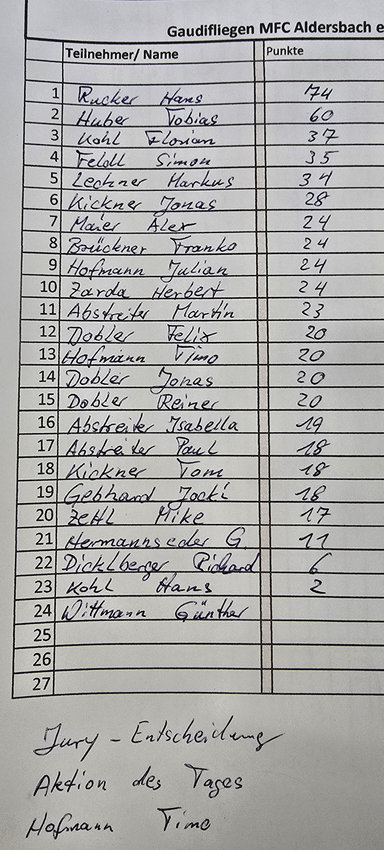 Gaudifliegen MFC Aldersbach e
Teilnehmer/ Name Punkte
1 Rucker Hans 74
2 Huber Tobias 60
3 Kohl Florian 37
4 Feldl Simon 35
5 Lechner Markus 34
6 Kickner Jonas 28
7 Maier Alex 24
8 Brückner Franko 24
9 Hofmann Julian 24
10 Zarda Herbert 24
11 Abstreiter Martin 23
12 Dobler Felix 20
13 Hofmann Timo 20
14 Dobler Jonas 20
15 Dobler Reiner 20
16 Abstreiter Isabella 19
17 Abstreiter Paul 18
18 Kickner Tom 18
19 Gebhard Jocki 18
20 Zettl Mike 17
21 Hermannseder G. 11
22 Dicklberger Richard 6
23 Kohl Hans 2
24 Wittmann Günther
25
26
27
Jury - Entscheidung
Aktion des Tages
Hofmann Timo